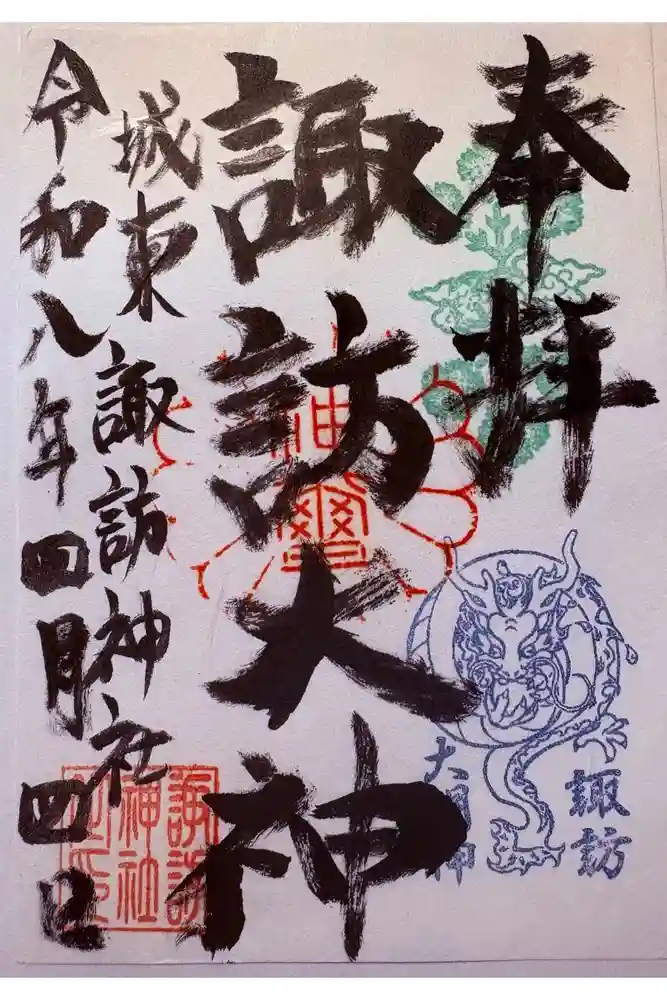 奉拝
諏訪大神
城東 諏訪神社
令和八年四月四日
神璽
諏訪
大明神
諏訪
神社